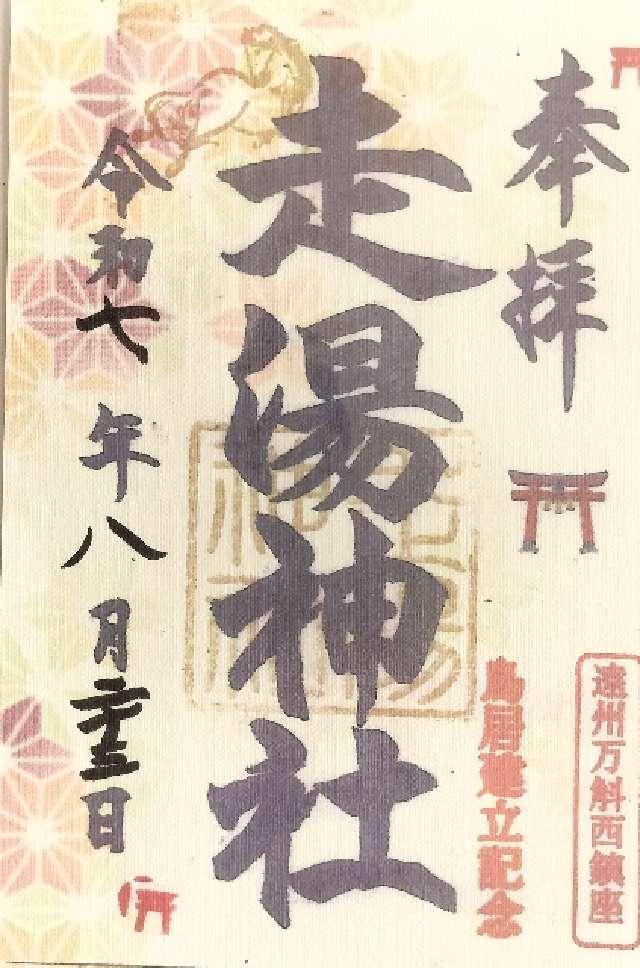 奉拝
遠州万斛西鎮座
鳥居建立記念
走湯神社
令和七年八月二十三日